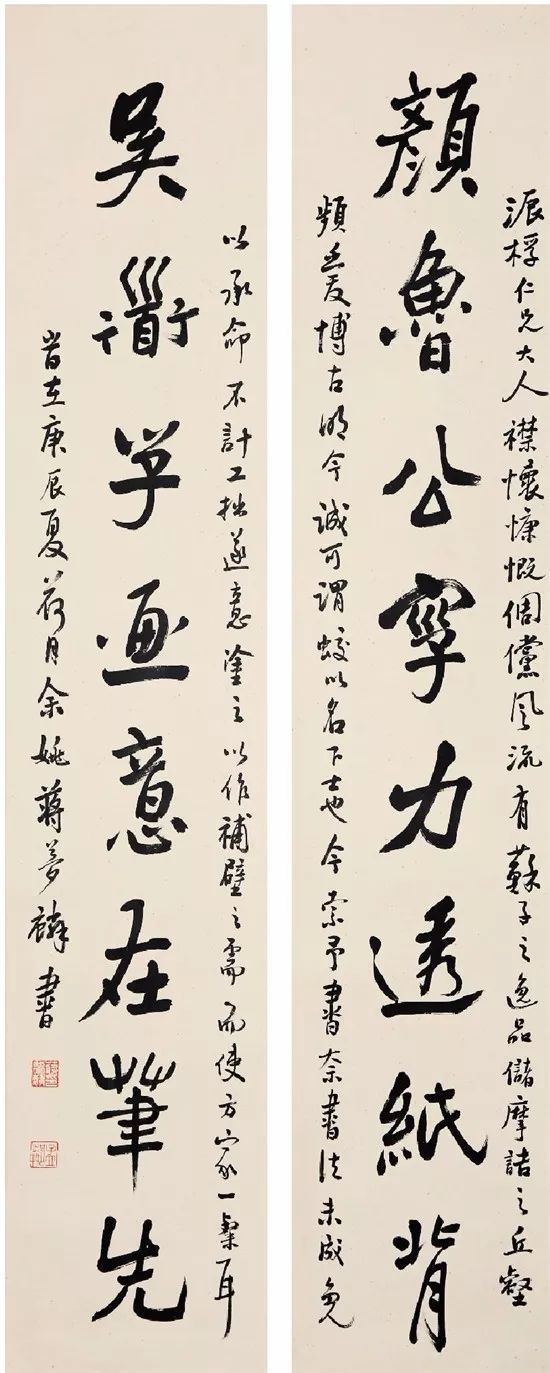 派桴仁兄大人襟懷慷慨倜儻風流有蘇子之逸品儲摩詰之丘壑
顏魯公字力透紙背
頻愛博古明今誠可謂以名下士也今索予書奈書法未成免
以承命不計工拙遂意塗之以作補壁之需而使方家一粲耳
吴衟子画意在筆先
旹在庚辰夏荷月余姚蔣夢麟書